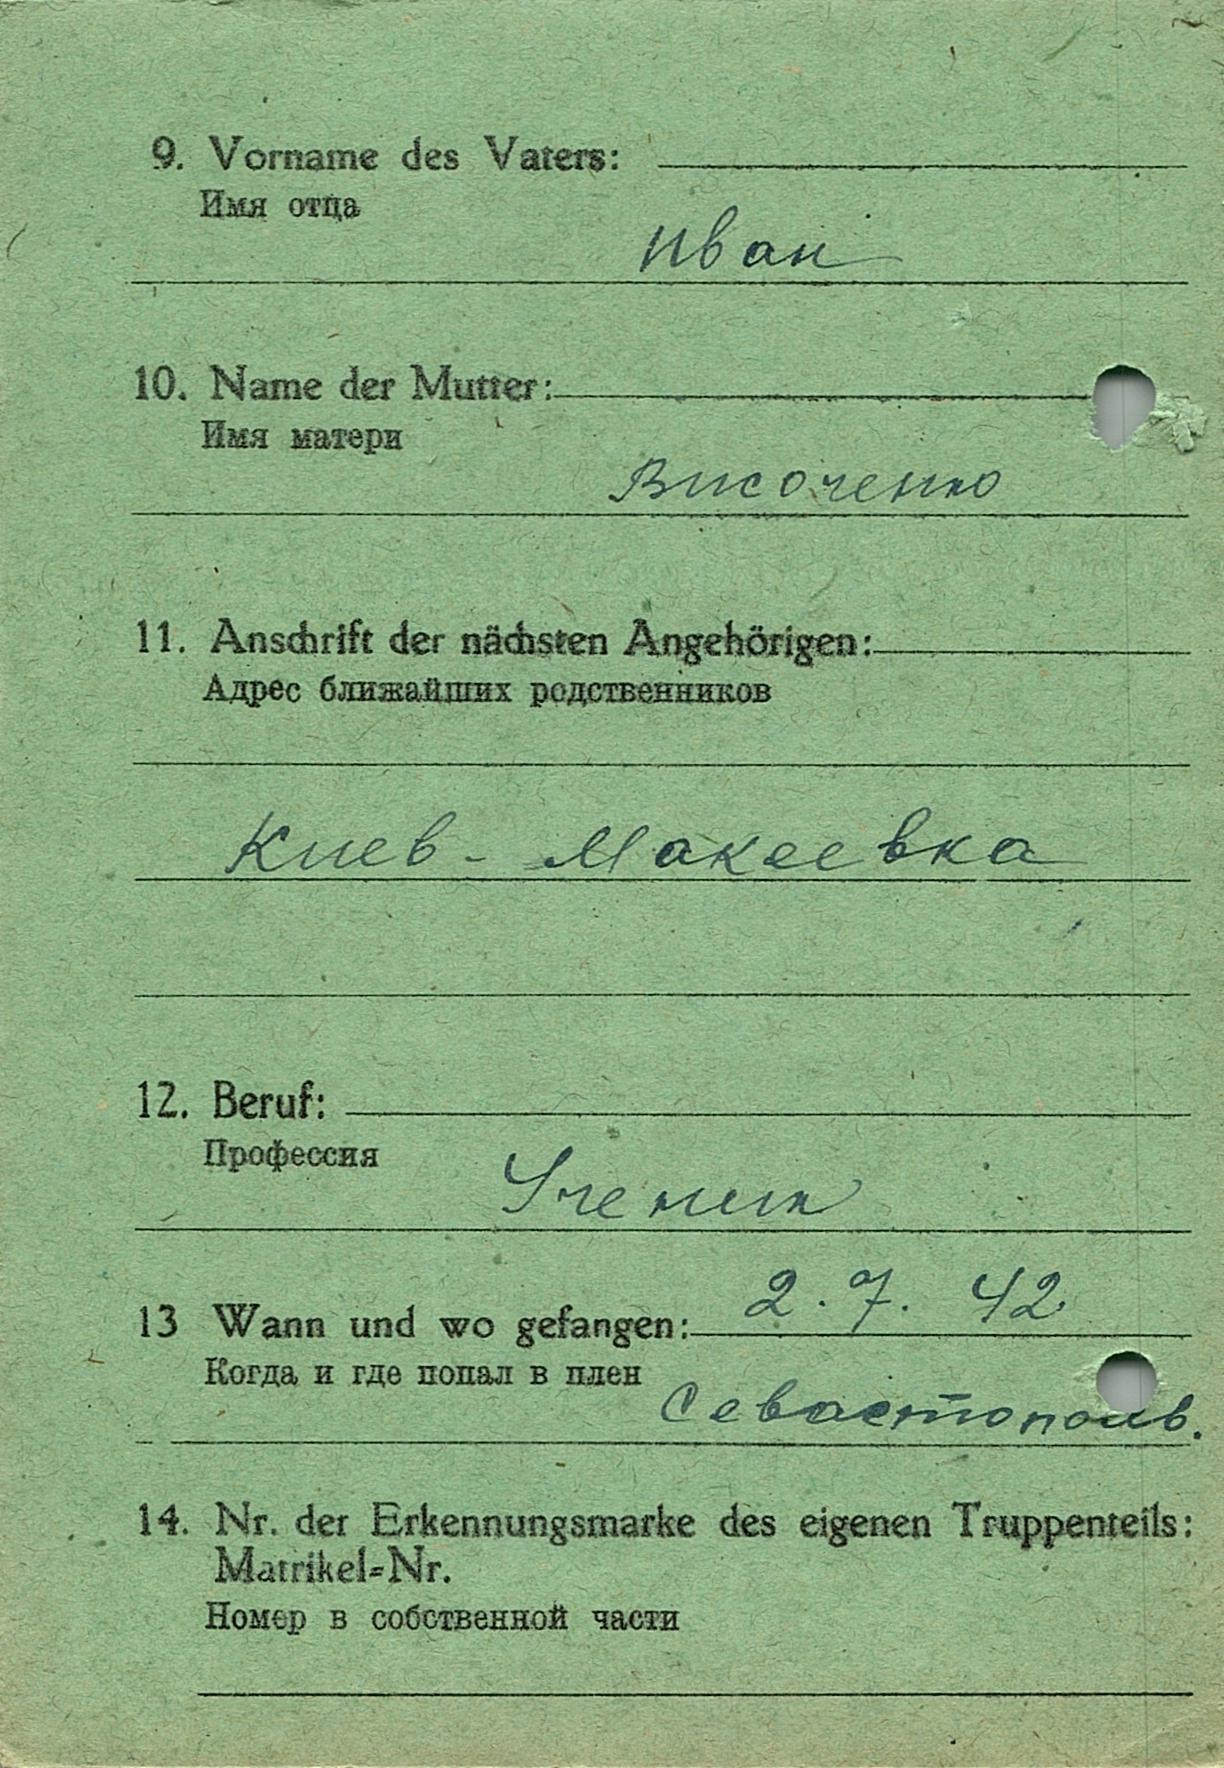 9. Vorname des Vaters:
Имя отца
Иван
10. Name der Mutter:
Имя матери
Височенко
11. Anschrift der nächsten Angehörigen:
Адрес ближайших родственников
Киев - Макеевка
12. Beruf:
Профессия
Ученик
2. 7. 42
13 Wann und wo gefangen:
Когда и где попал в плен
Севастополь.
14. Nr. der Erkennungsmarke des eigenen Truppenteils:
Matrikel=Nr.
Номер в собственной части